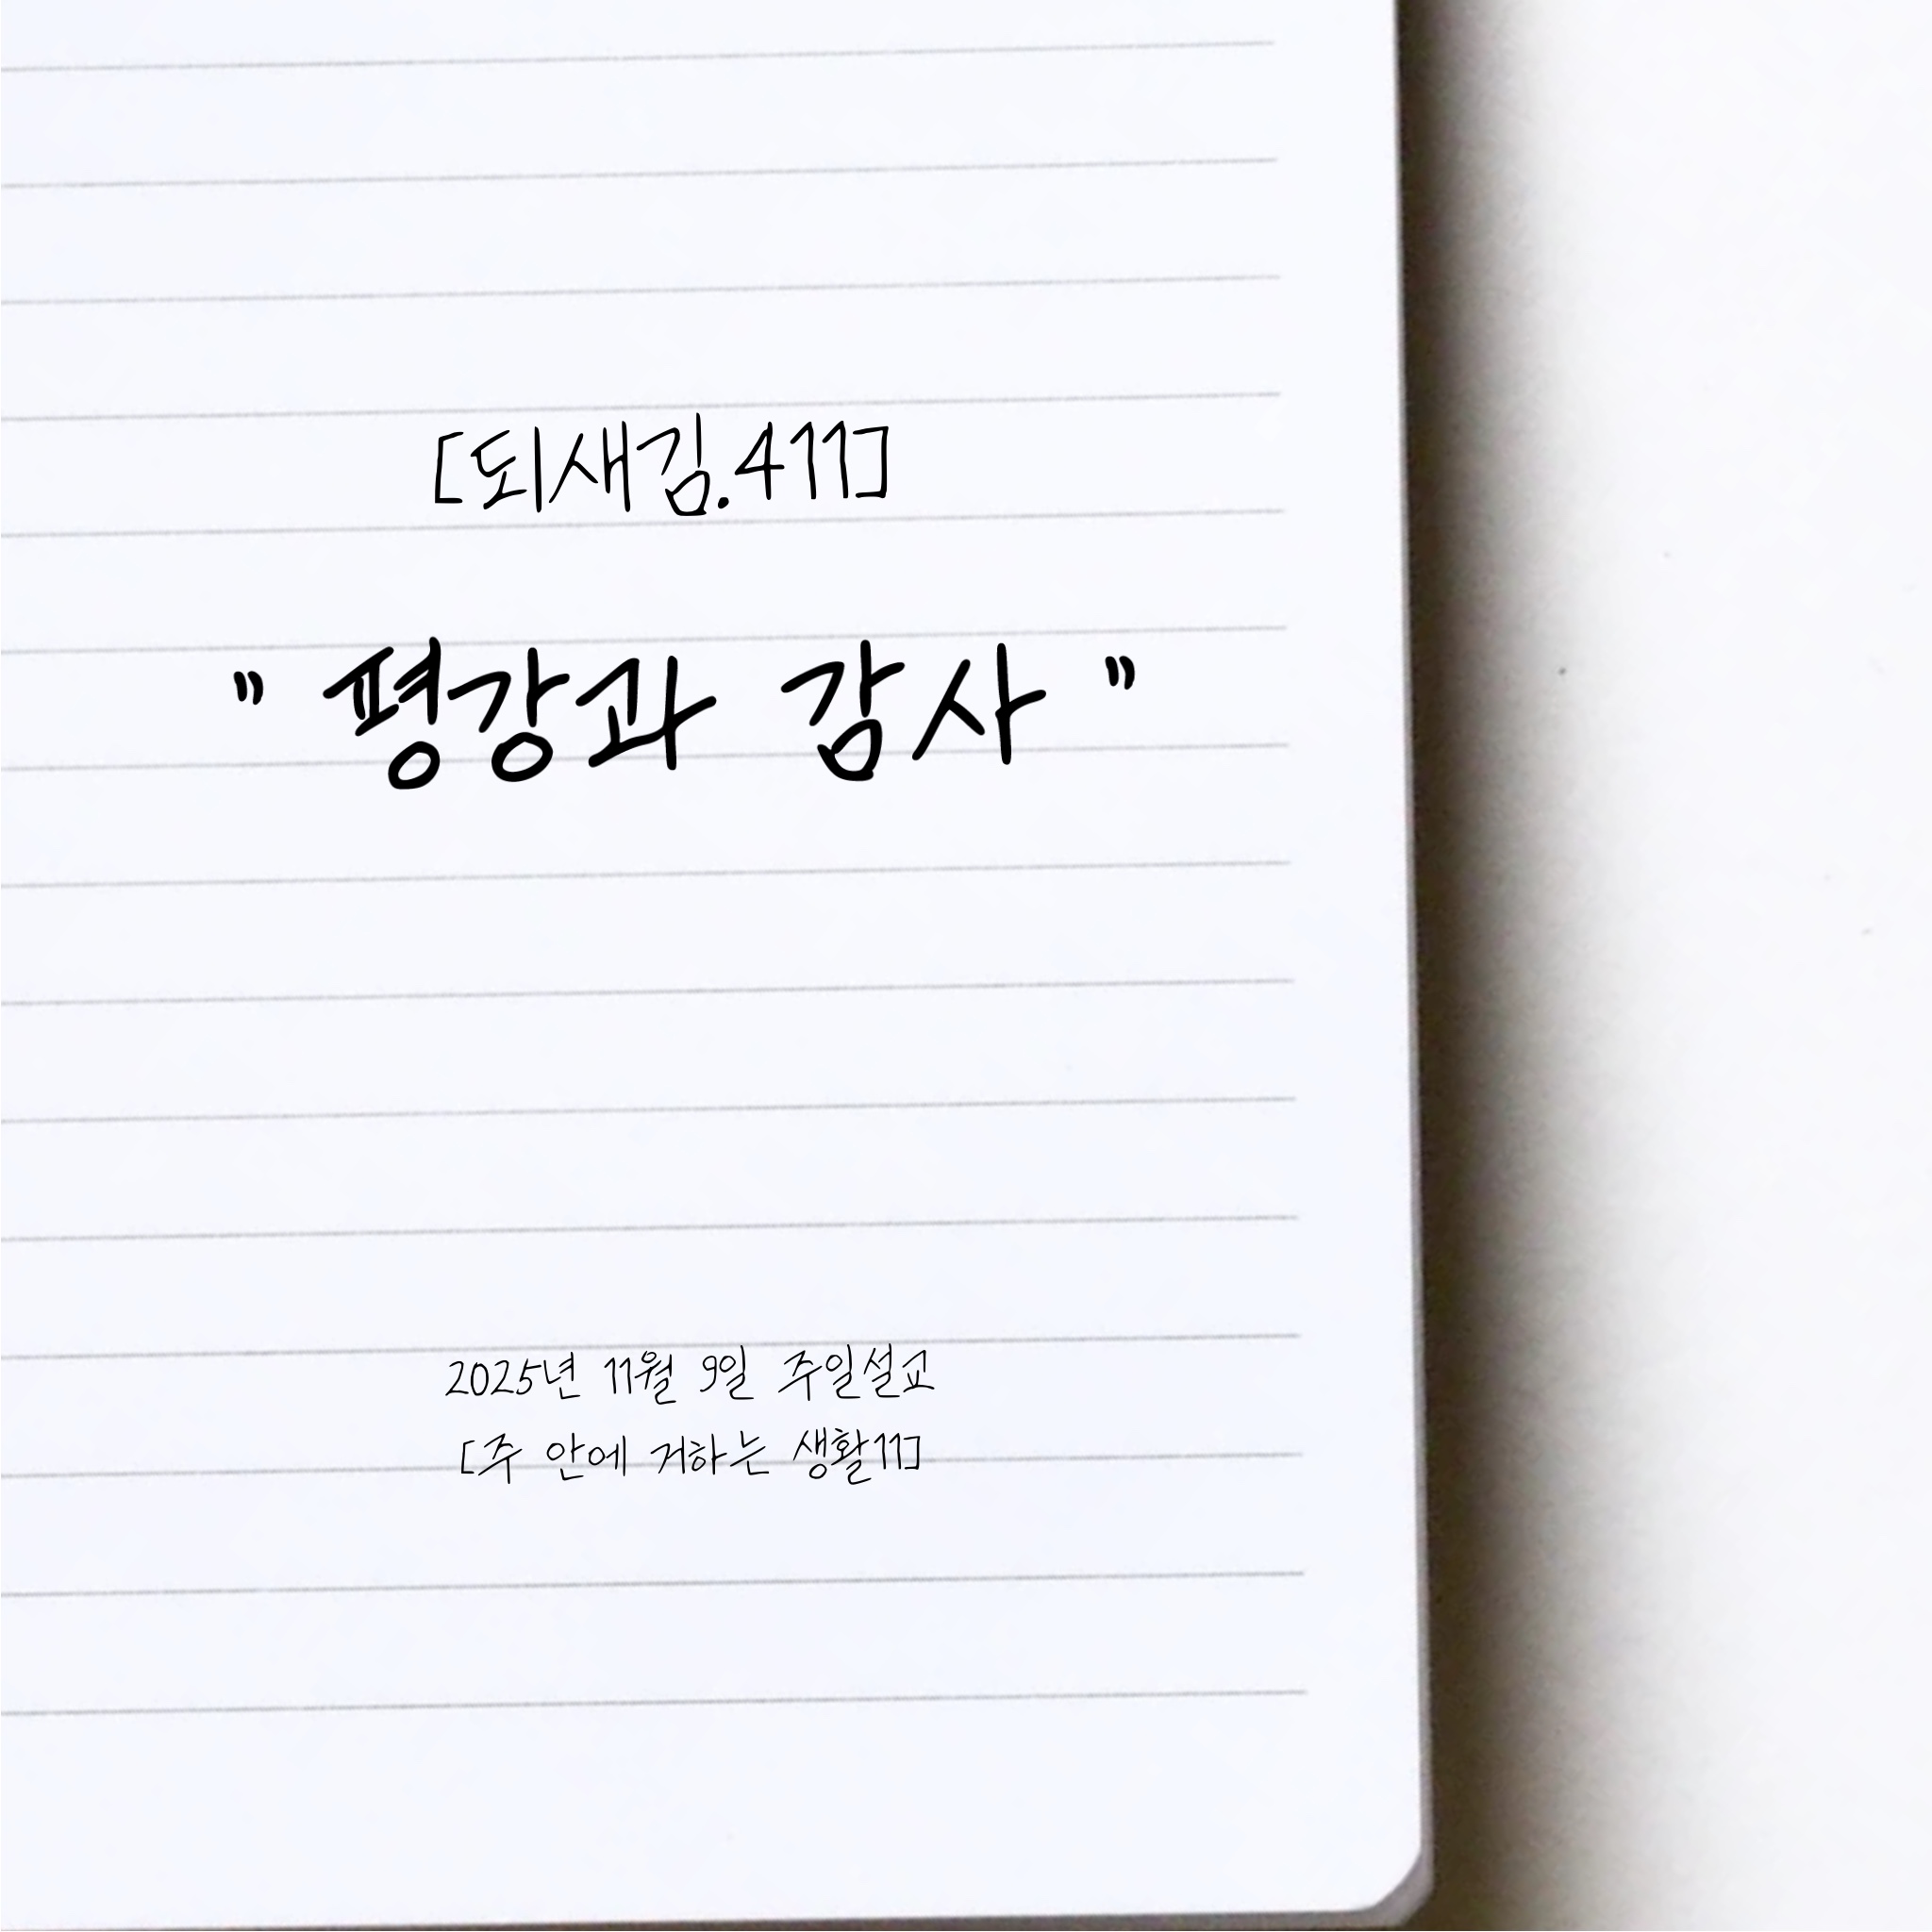 [되새김.411]
" 평강과 감사 "
2025년 11월 9일 주일설교
[주 안에 거하는 생활11]